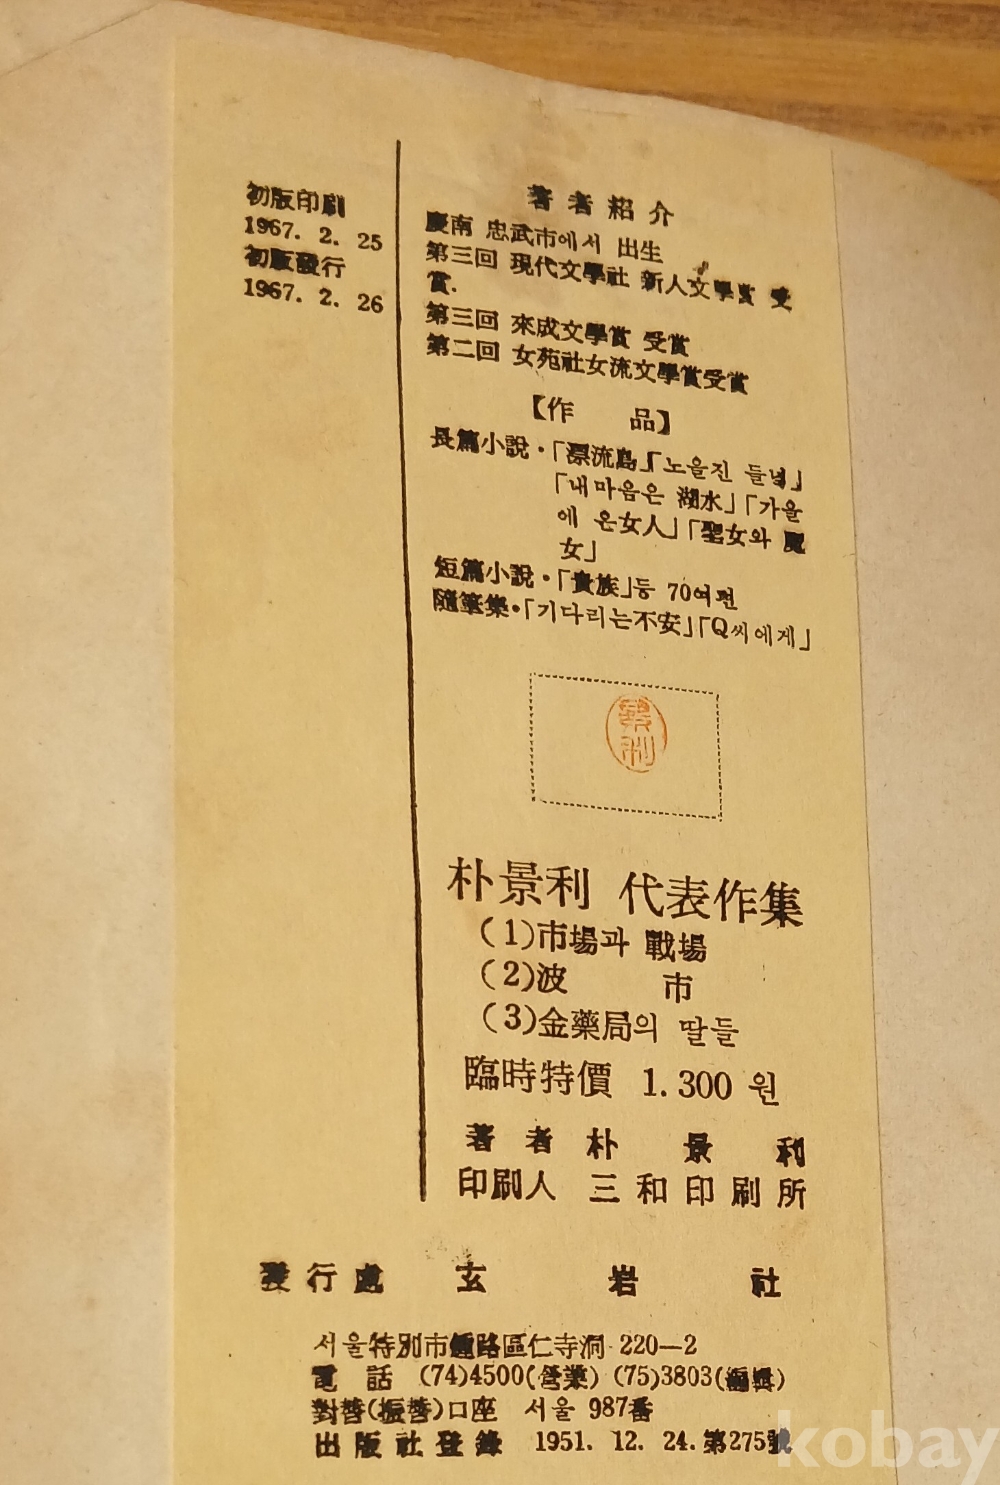 初版印刷
1967. 2. 25
初版發行
1967. 2. 26
著者紹介
慶南 忠武市에서 出生
第三回 現代文學社 新人文學賞 受
賞.
第三回 來成文學賞 受賞
第二回 女苑社女流文學賞受賞
【作 品】
長篇小說・「漂流島」「노을진 들녘」
「내마음은 湖水」「가을
에 온女人」「聖女와 魔
女」
短篇小說・「貴族」등 70여편
隨筆集・「기다리는不安」「Q씨에게」
景利
朴景利 代表作集
(1)市場과 戰場
(2)波 市
(3)金藥局의 딸들
臨時特價 1.300 원
著者 朴景利
印刷人 三和印刷所
發行處 玄岩社
서울特別市鍾路區仁寺洞 220—2
電 話 (74)4500(營業) (75)3803(編輯)
對替(振替)口座 서울 987番
出版社登錄 1951. 12. 24.第275號
kobay